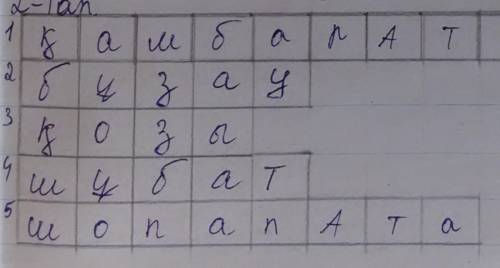 1 қ а м б а р А Т
2 б ұ з а у
3 қ о з ы
4 ш ұ б а т
5 ш о п а п А т а